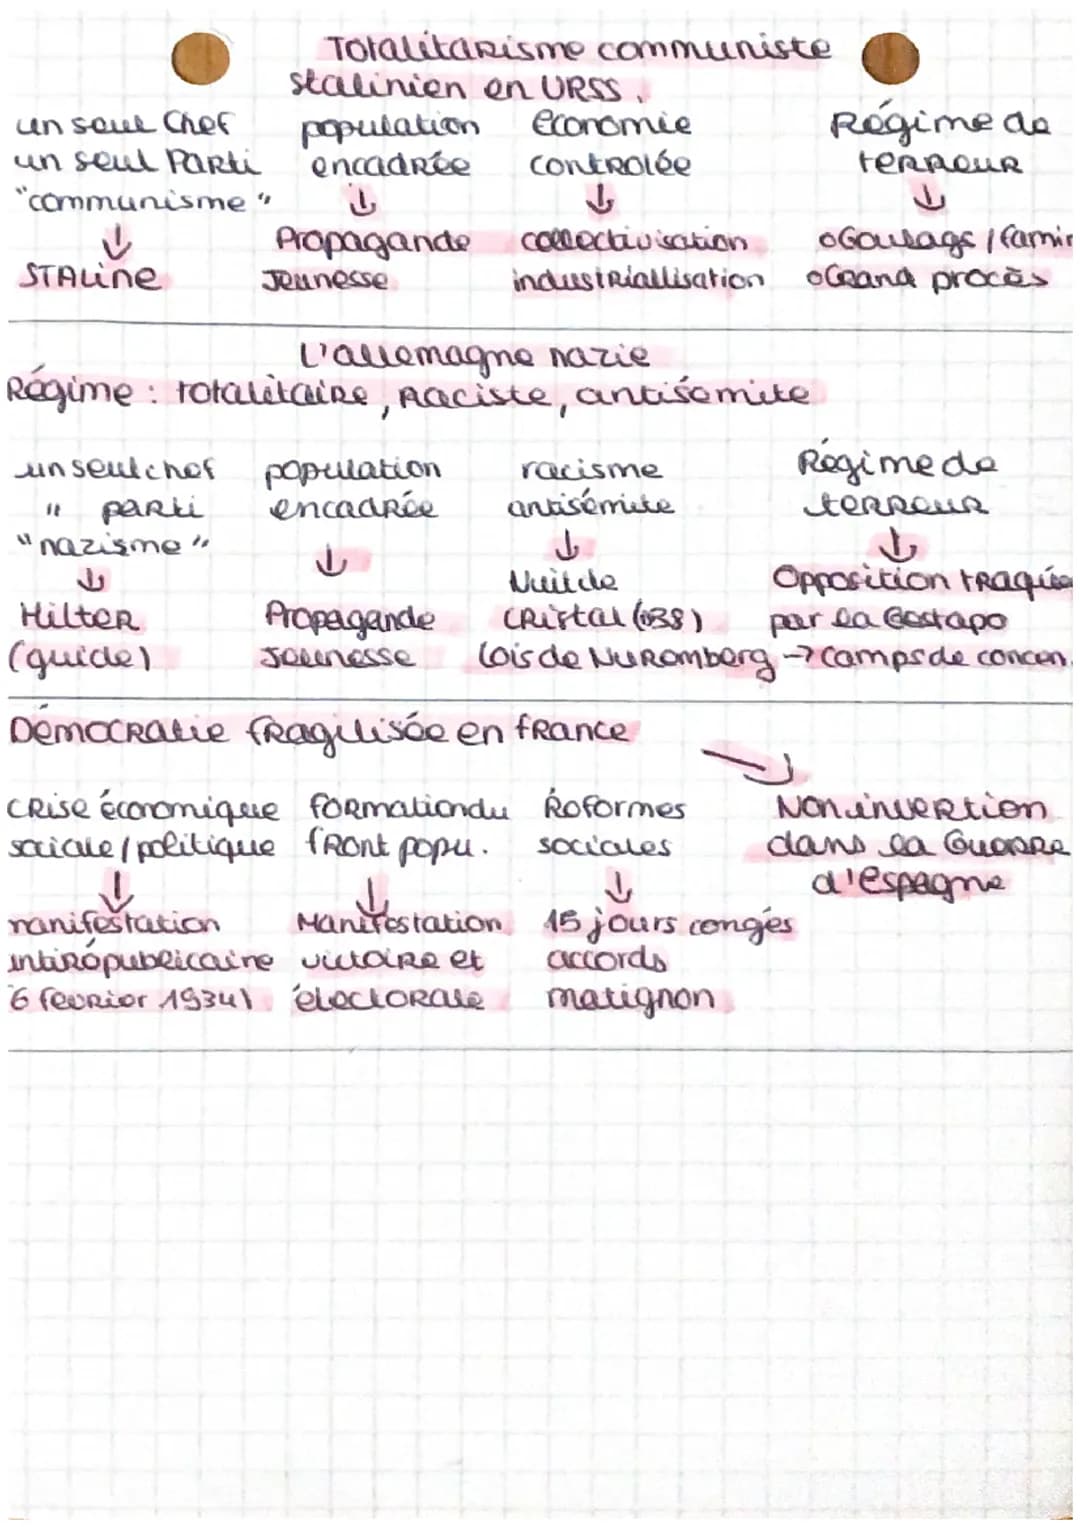 Totalitarisme communiste
stalinien en URSS.
un seul Chef population économie Régime de
un seul Parti encadrée controlée terreur
"communisme" ↓ ↓ ↓
↓ Propagande collectivisation o Goulags / famin
STALine Jeunesse industriallisation o Grand procès
L'allemagne nazie
Régime : totalitaire, raciste, antisémite
un seul chef population racisme Régime de
" parti encadrée antisémite terreur
"nazisme" ↓ ↓ ↓
↓ Nuit de Opposition traquée
Hilter Propagande cristal (38) par la Gestapo
(guide) Jeunesse Lois de Nuremberg → camps de concen.
Démocratie fragilisée en france
crise économique formation du Réformes Non invertion
sociale / politique front popu. sociales dans la Guerre
↓ ↓ ↓ d'espagne
manifestation Manifestation 15 jours congés
antirépublicaine victoire et accords
6 fevrier 1934) électorale matignon